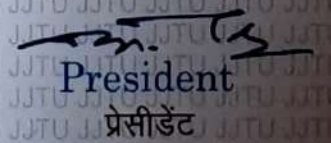 JJTU JJTU JJTU JJTU JJTU
President
प्रेसीडेंट